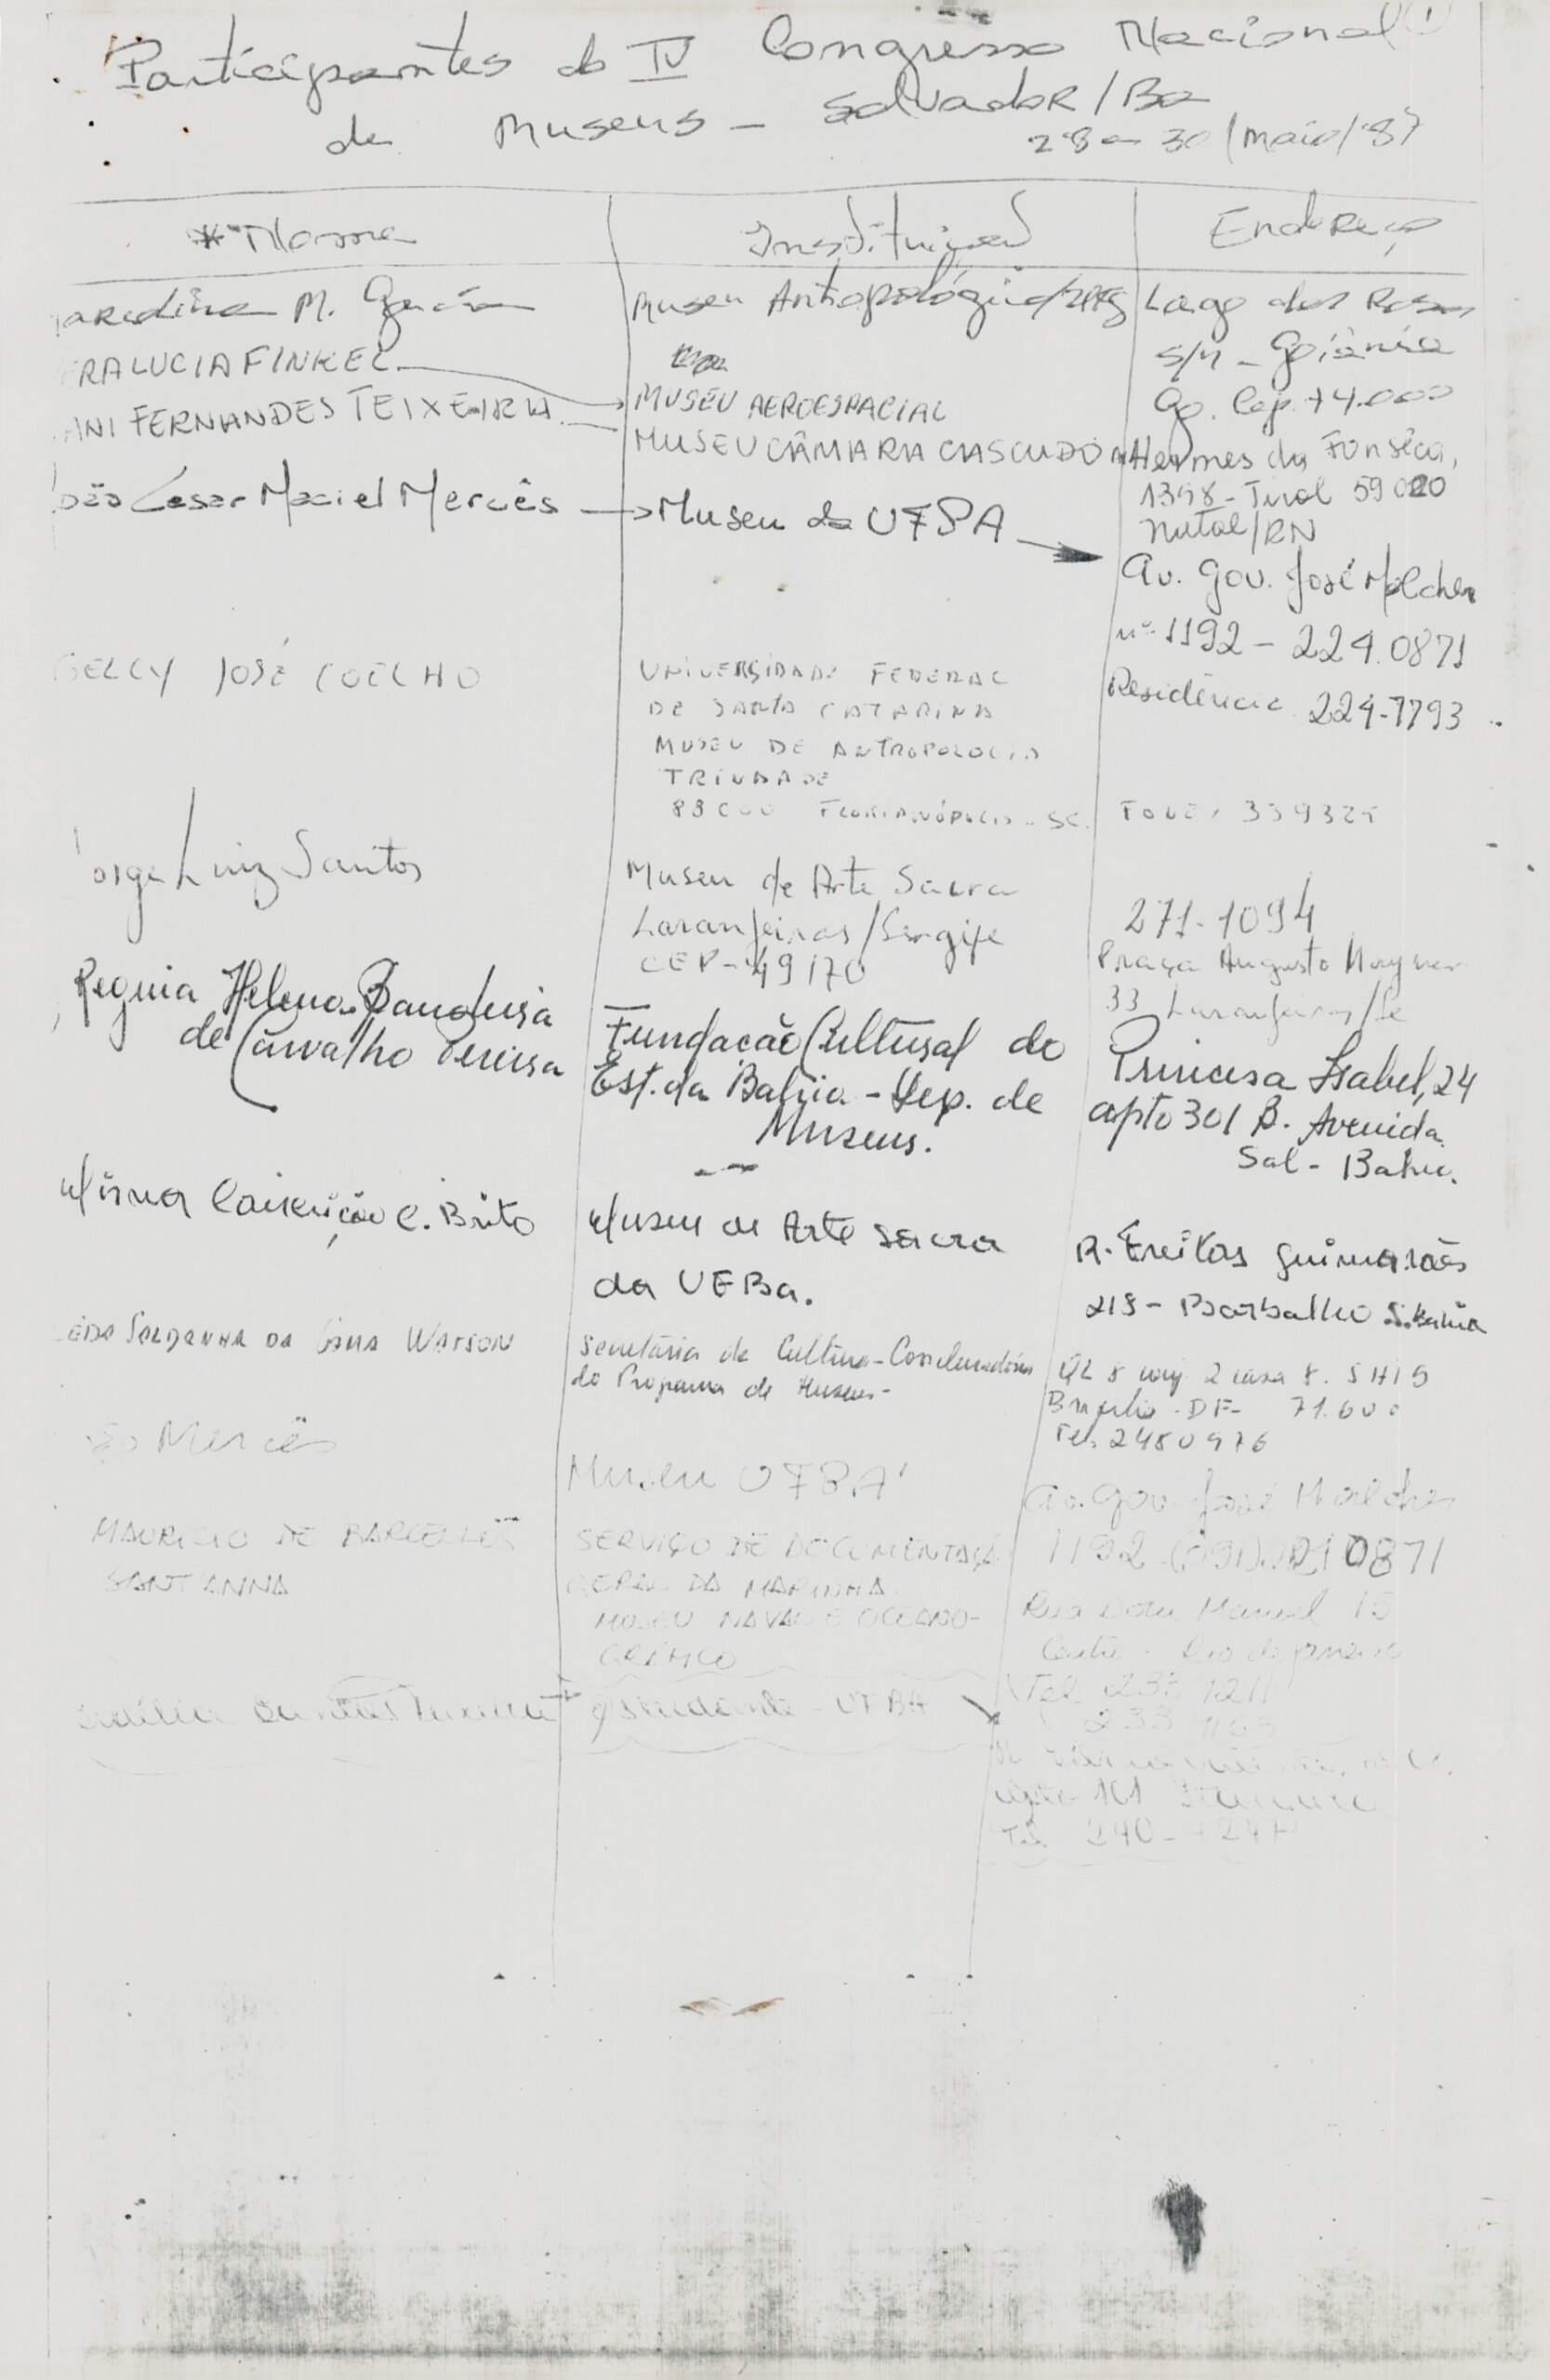 Participantes do IV Congresso Nacional (1)
de Museus - Salvador/Ba
28 a 30/Maio/87
* Nome
Instituição
Endereço
M. Garcia
Museu Antropológico/UFG
Lago das Rosas
S/N - Goiânia
Go. Cep. 74.000
ERALUCIA FINKEL
MUSEU AEROESPACIAL
ANI FERNANDES TEIXEIRA
MUSEU CÂMARA CASCUDO
Hermes da Fonsêca,
1398 - Tirol 59020
Natal/RN
oão César Maciel Mercês
Museu da UFPA
Av. Gov. José Malcher
nº 1192 - 224.0871
Residência 224-7793
GELCY JOSÉ COELHO
UNIVERSIDADE FEDERAL
DE SANTA CATARINA
MUSEU DE ANTROPOLOGIA
TRINDADE
88000 FLORIANÓPOLIS - SC.
FONE:
orge Luiz Santos
Museu de Arte Sacra
Laranjeiras/Sergipe
CEP - 49170
271-1094
Praça Augusto Maynar
33 Laranjeiras/Se
Regina Helena
de Carvalho Pereira
Fundação Cultural do
Est. da Bahia - Dep. de
Museus.
Princesa Isabel, 24
apto 301 B. Avenida
Sal - Bahia.
Mirna Conceição C. Brito
Museu de Arte Sacra
da UFBa.
R. Freitas Guimarães
218 - Barbalho S. Bahia
EDA SALDANHA DA GAMA WATSON
Secretária de Cultura - Coordenadoria
do Programa de Museus -
QL 8 conj 2 casa 8. SHIS
Brasília - DF - 71.600
Tel. 2480976
ão Mercês
Museu UFPA
Av. Gov. José Malcher
1192 (091) 0871
MAURÍCIO DE BARCELLOS
SANT'ANNA
SERVIÇO DE DOCUMENTAÇÃ
GERAL DA MARINHA
MUSEU NAVAL E OCEANO-
GRÁFICO
Rua Dom Manuel 15
Centro - Rio de Janeiro
Tel. 233
Teixeira
Estudante - UFBA
apto 101
Tel. 240-